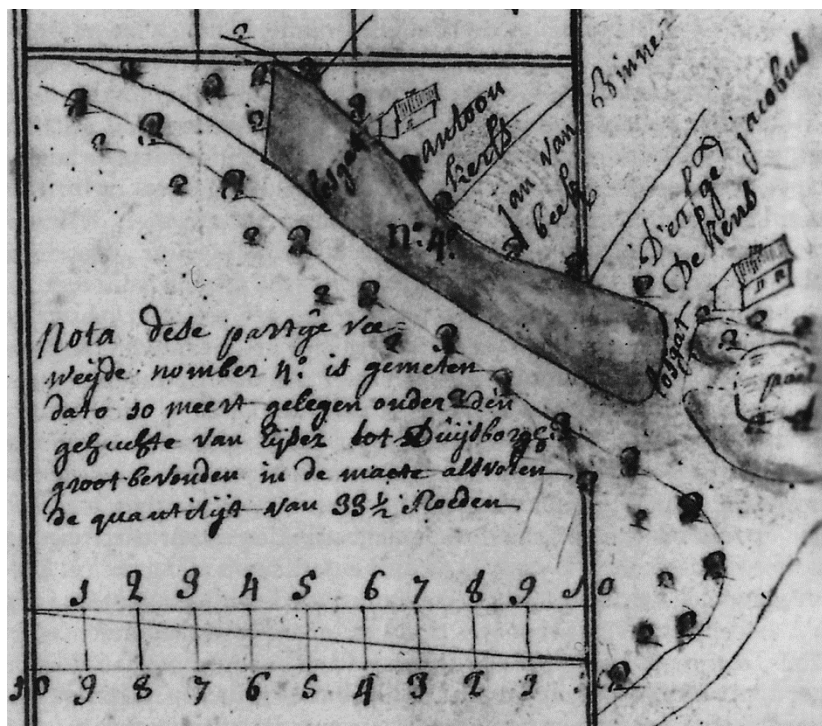 Binne
antoon
Lierts
jan van
beek
D'erfge
jacobus
De Kens
losgat
n.º 4.º
losgat
poel
Nota dese partije vee
weijde nomber 4.º is gemeten
dato 10 meert gelegen onder den
gehuchte van Eijser tot Duijsborgh
groot bevonden in de maete alsvolen
de quantitijt van 33 ½ Roeden
1 2 3 4 5 6 7 8 9 10
10 9 8 7 6 5 4 3 2 1